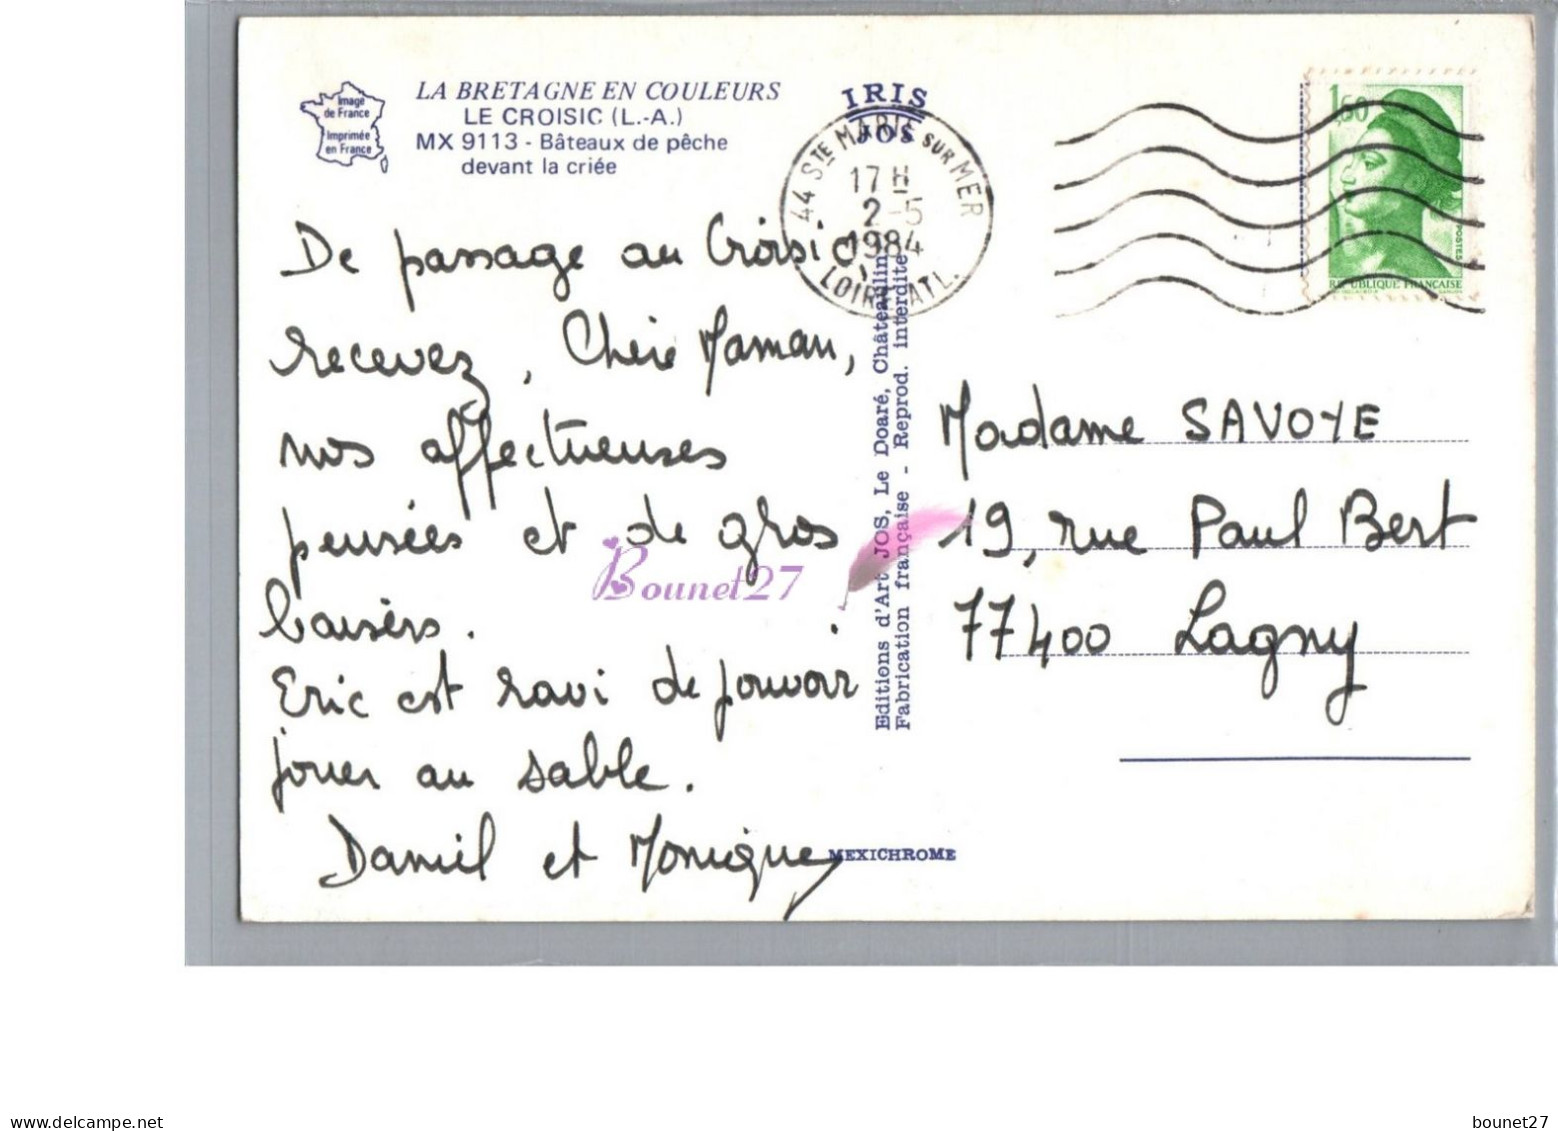 Image
de France
Imprimée
en France
LA BRETAGNE EN COULEURS
LE CROISIC (L.-A.)
MX 9113 - Bâteaux de pêche
devant la criée
IRIS
JOS
44 STE MARIE SUR MER
17 H
2-5
1984
LOIRE ATL.
1,60
POSTES
REPUBLIQUE FRANÇAISE
De passage au Croisic
recevez, Chère Maman,
nos affectueuses
pensées et de gros
baisers.
Eric est ravi de pouvoir
jouer au sable.
Daniel et Monique
Editions d'Art JOS, Le Doaré, Châteaulin
Fabrication française - Reprod. interdite
Madame SAVOYE
19, rue Paul Bert
77400 Lagny
MEXICHROME
Bounet27
delcampe.net
bounet27